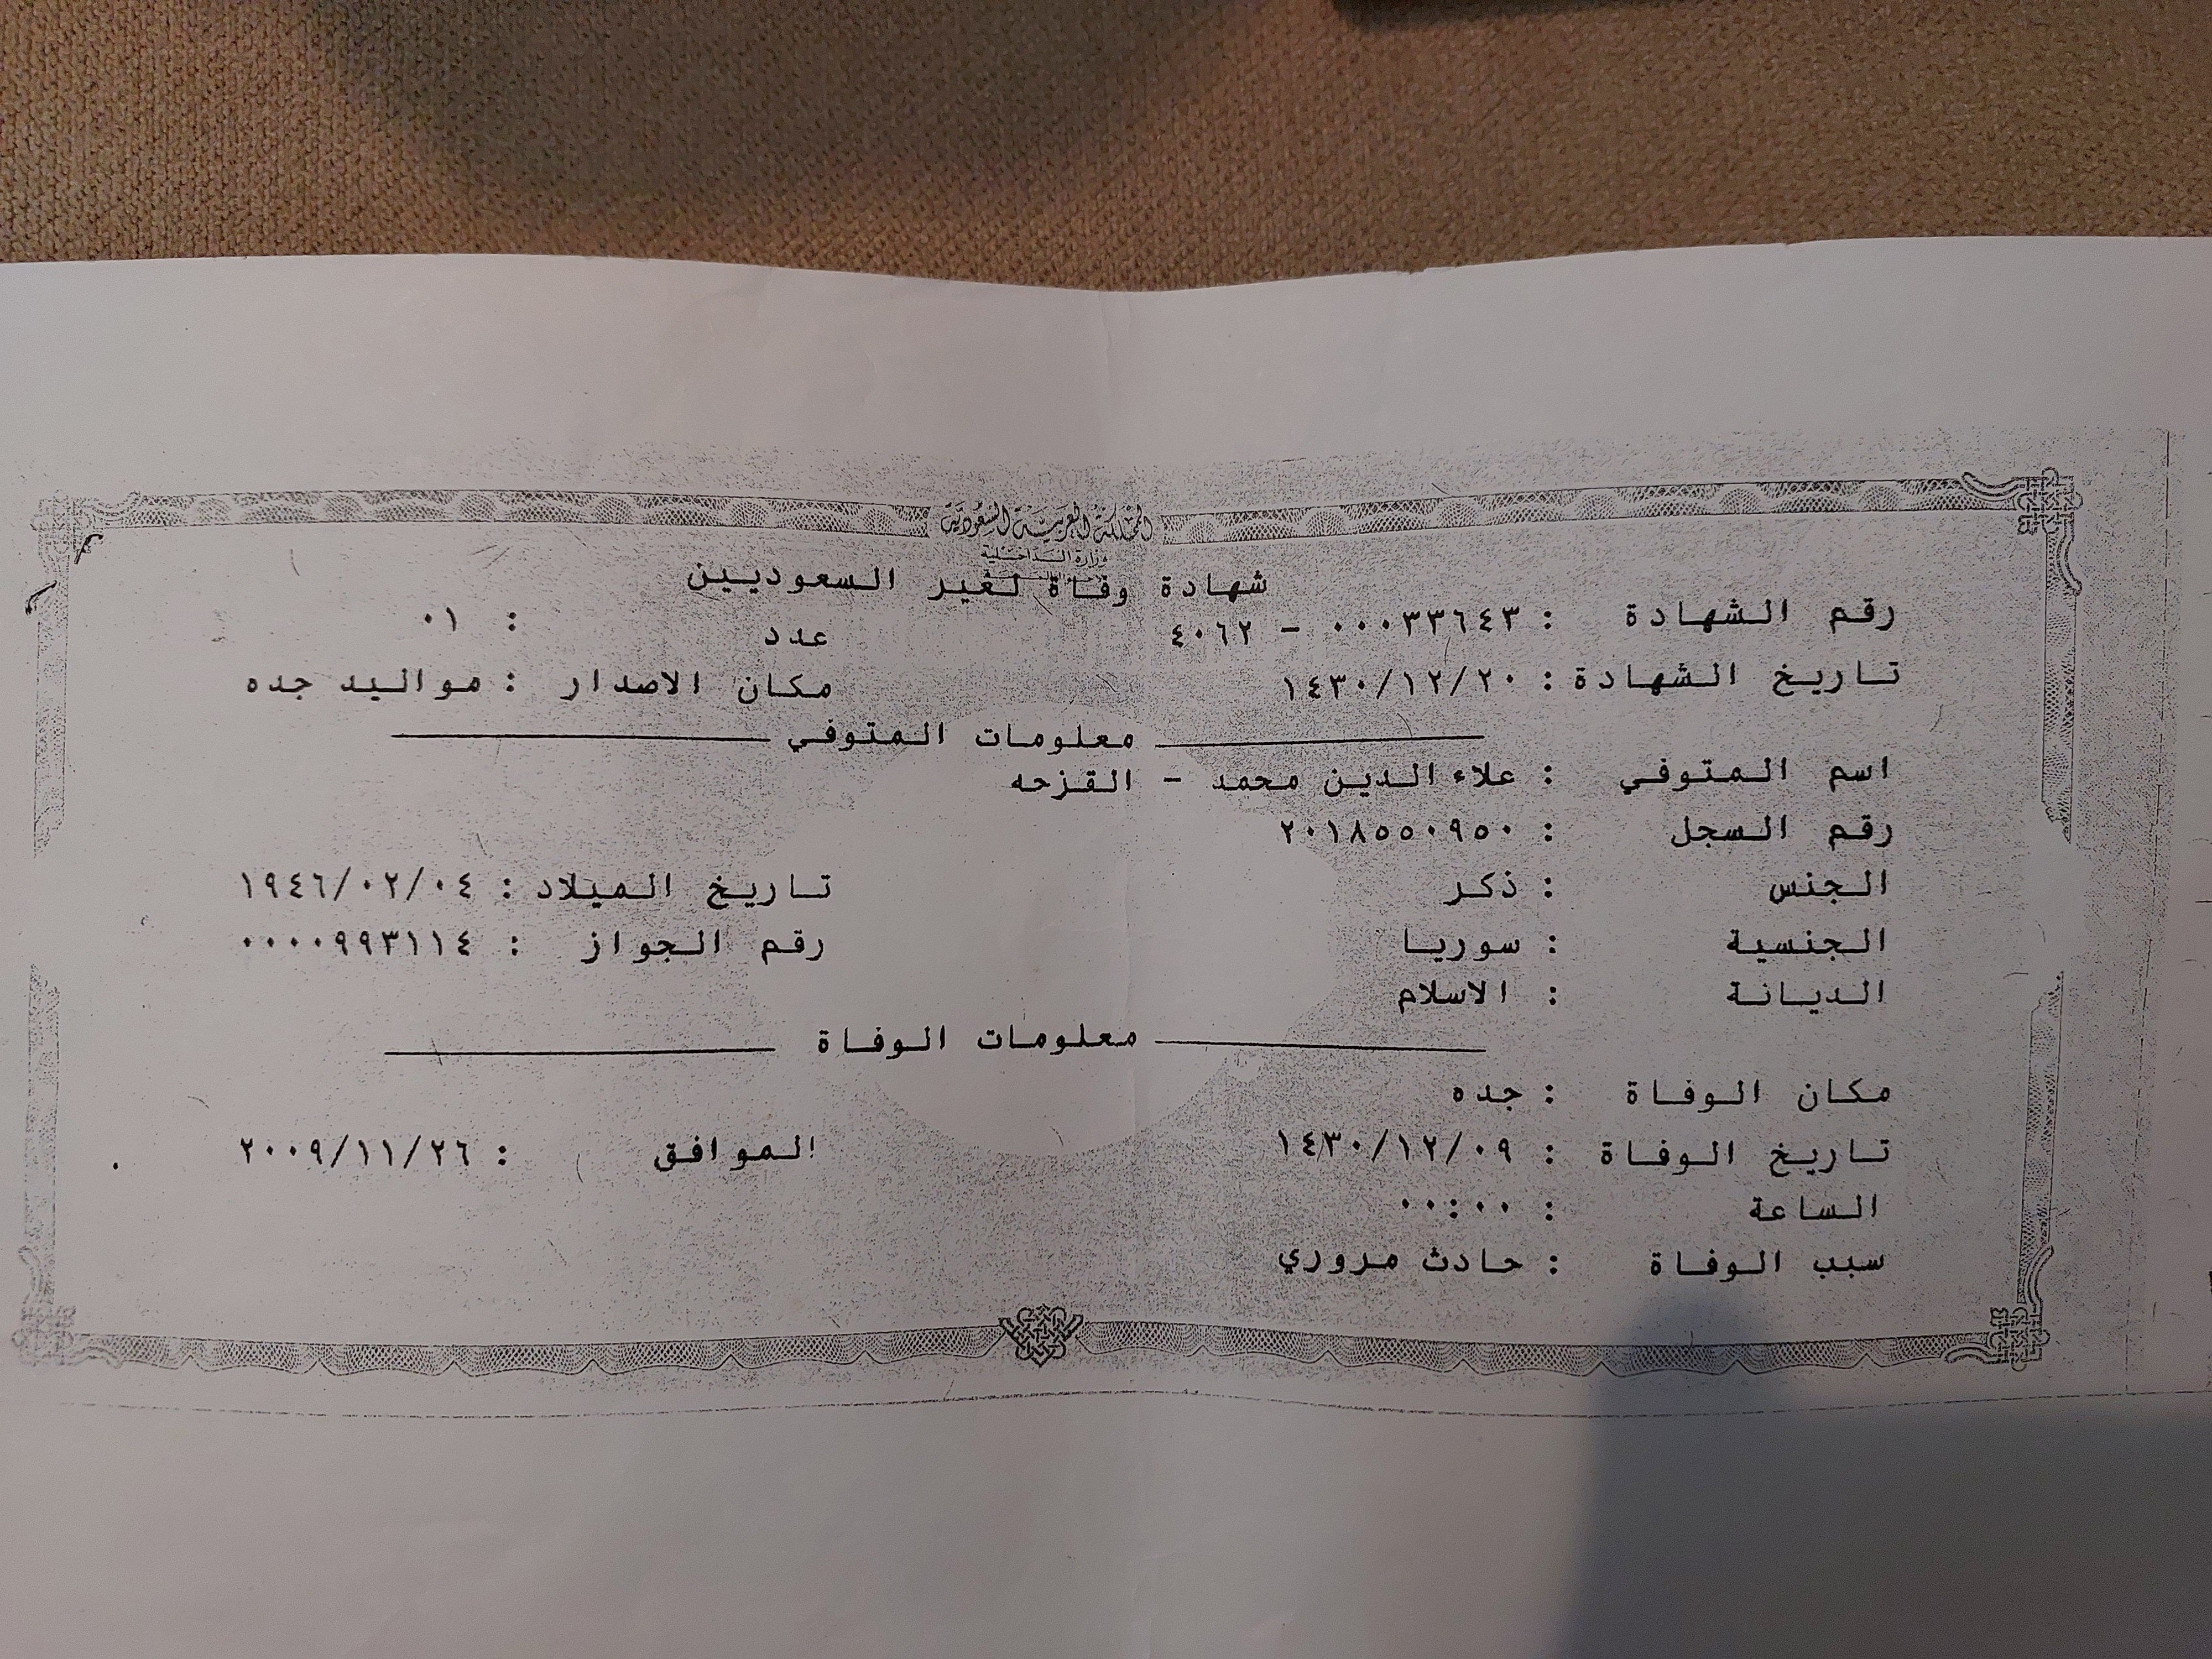 المملكة العربية السعودية
وزارة الداخلية
شهادة وفاة لغير السعوديين
رقم الشهادة : ٠٠٠٣٣٦٤٣ - ٤٠٦٢ عدد : ٠١
تاريخ الشهادة : ١٤٣٠/١٢/٢٠ مكان الاصدار : مواليد جده
معلومات المتوفي
اسم المتوفي : علاء الدين محمد - القزحه
رقم السجل : ٢٠١٨٥٥٠٩٥٠
الجنس : ذكر تاريخ الميلاد : ١٩٤٦/٠٢/٠٤
الجنسية : سوريا رقم الجواز : ٠٠٠٠٩٩٣١١٤
الديانة : الاسلام
معلومات الوفاة
مكان الوفاة : جده
تاريخ الوفاة : ١٤٣٠/١٢/٠٩ الموافق : ٢٠٠٩/١١/٢٦
الساعة : ٠٠:٠٠
سبب الوفاة : حادث مروري